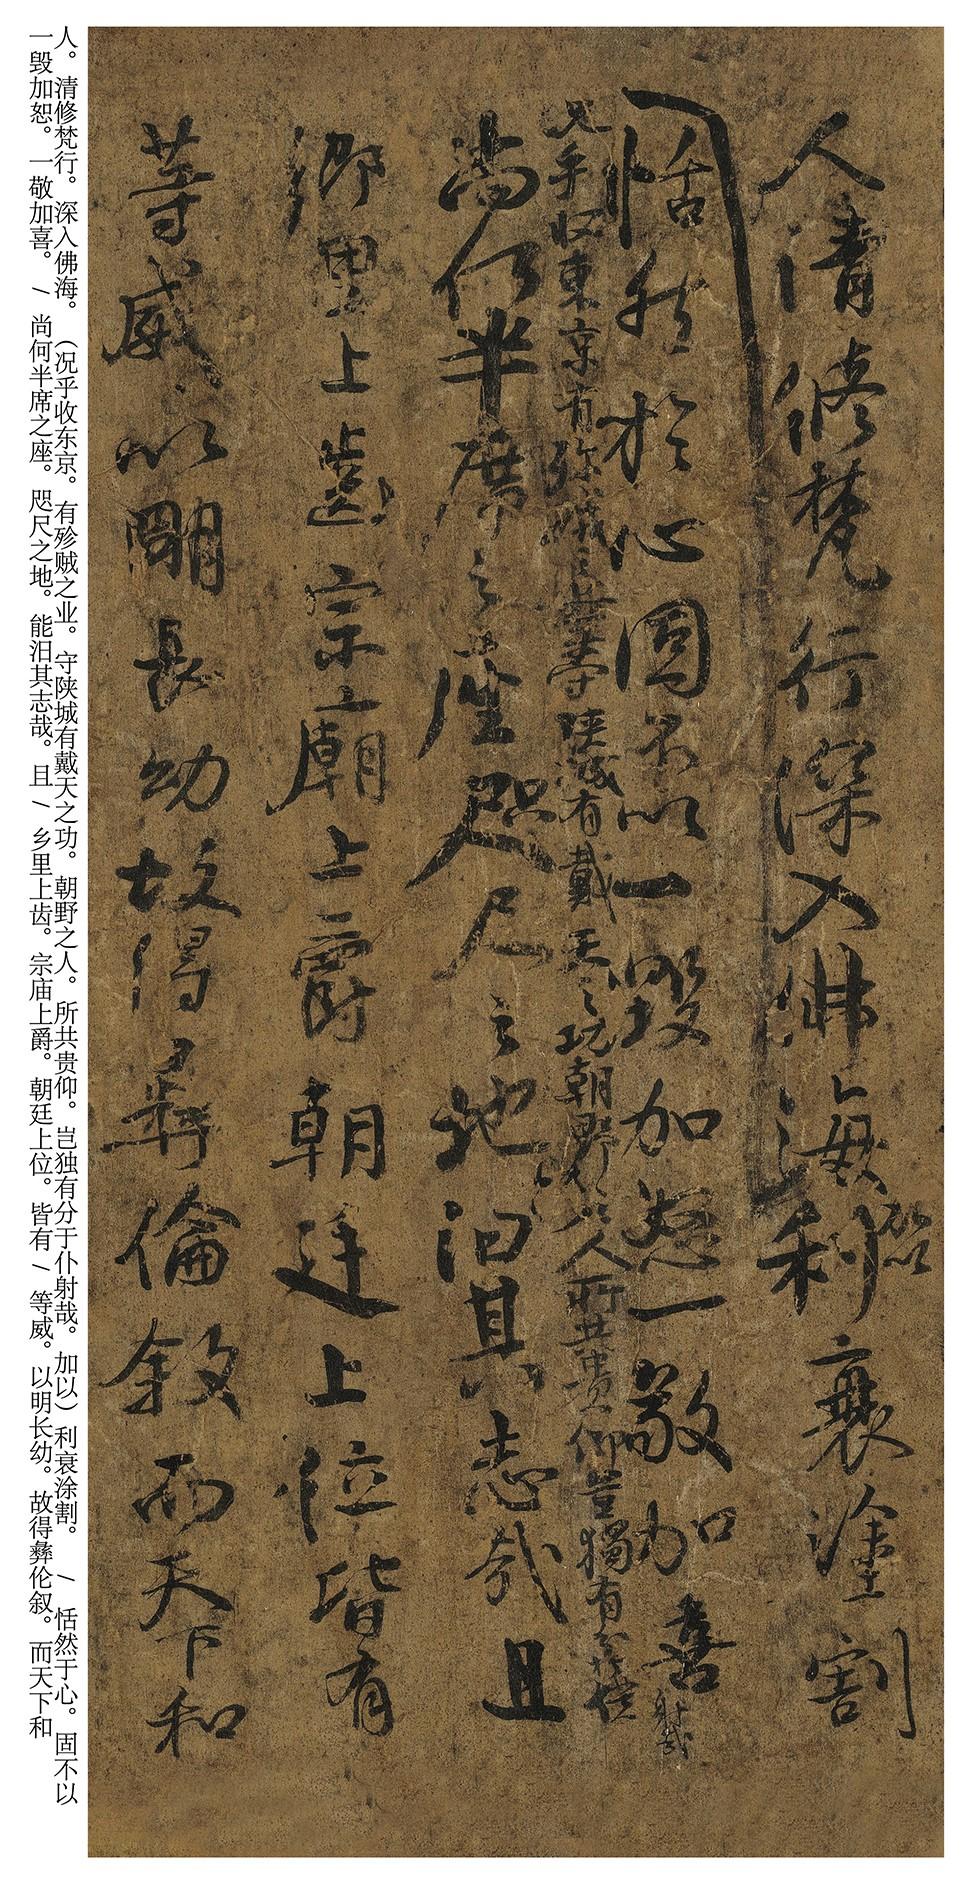 人清修梵行深入佛海利衰塗割
加以
恬然於心固不以一毀加怒一敬加喜
况乎收東京有殄賊之業守陝城有戴天之功朝野之人所共貴仰豈獨有分於僕射哉
尚何半席之座咫尺之地汩其志哉且
鄉里上齒宗廟上爵朝廷上位皆有
等威以明長幼故得彝倫敘而天下和
人。清修梵行。深入佛海。（况乎收东京。有殄贼之业。守陕城有戴天之功。朝野之人。所共贵仰。岂独有分于仆射哉。加以）利衰涂割。/ 恬然于心。固不以
一毁加恕。一敬加喜。/ 尚何半席之座。咫尺之地。能汩其志哉。且 / 乡里上齿。宗庙上爵。朝廷上位。皆有 / 等威。以明长幼。故得彝伦叙。而天下和